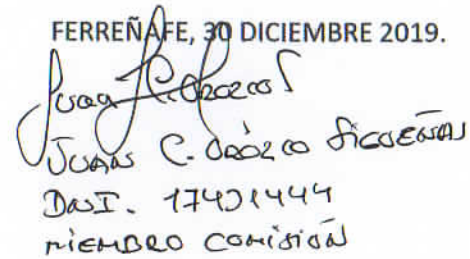 FERREÑAFE, 30 DICIEMBRE 2019.
Juan C. Orozco S
JUAN C. OROZCO SIGUEÑAS
DNI. 17431444
MIEMBRO COMISIÓN